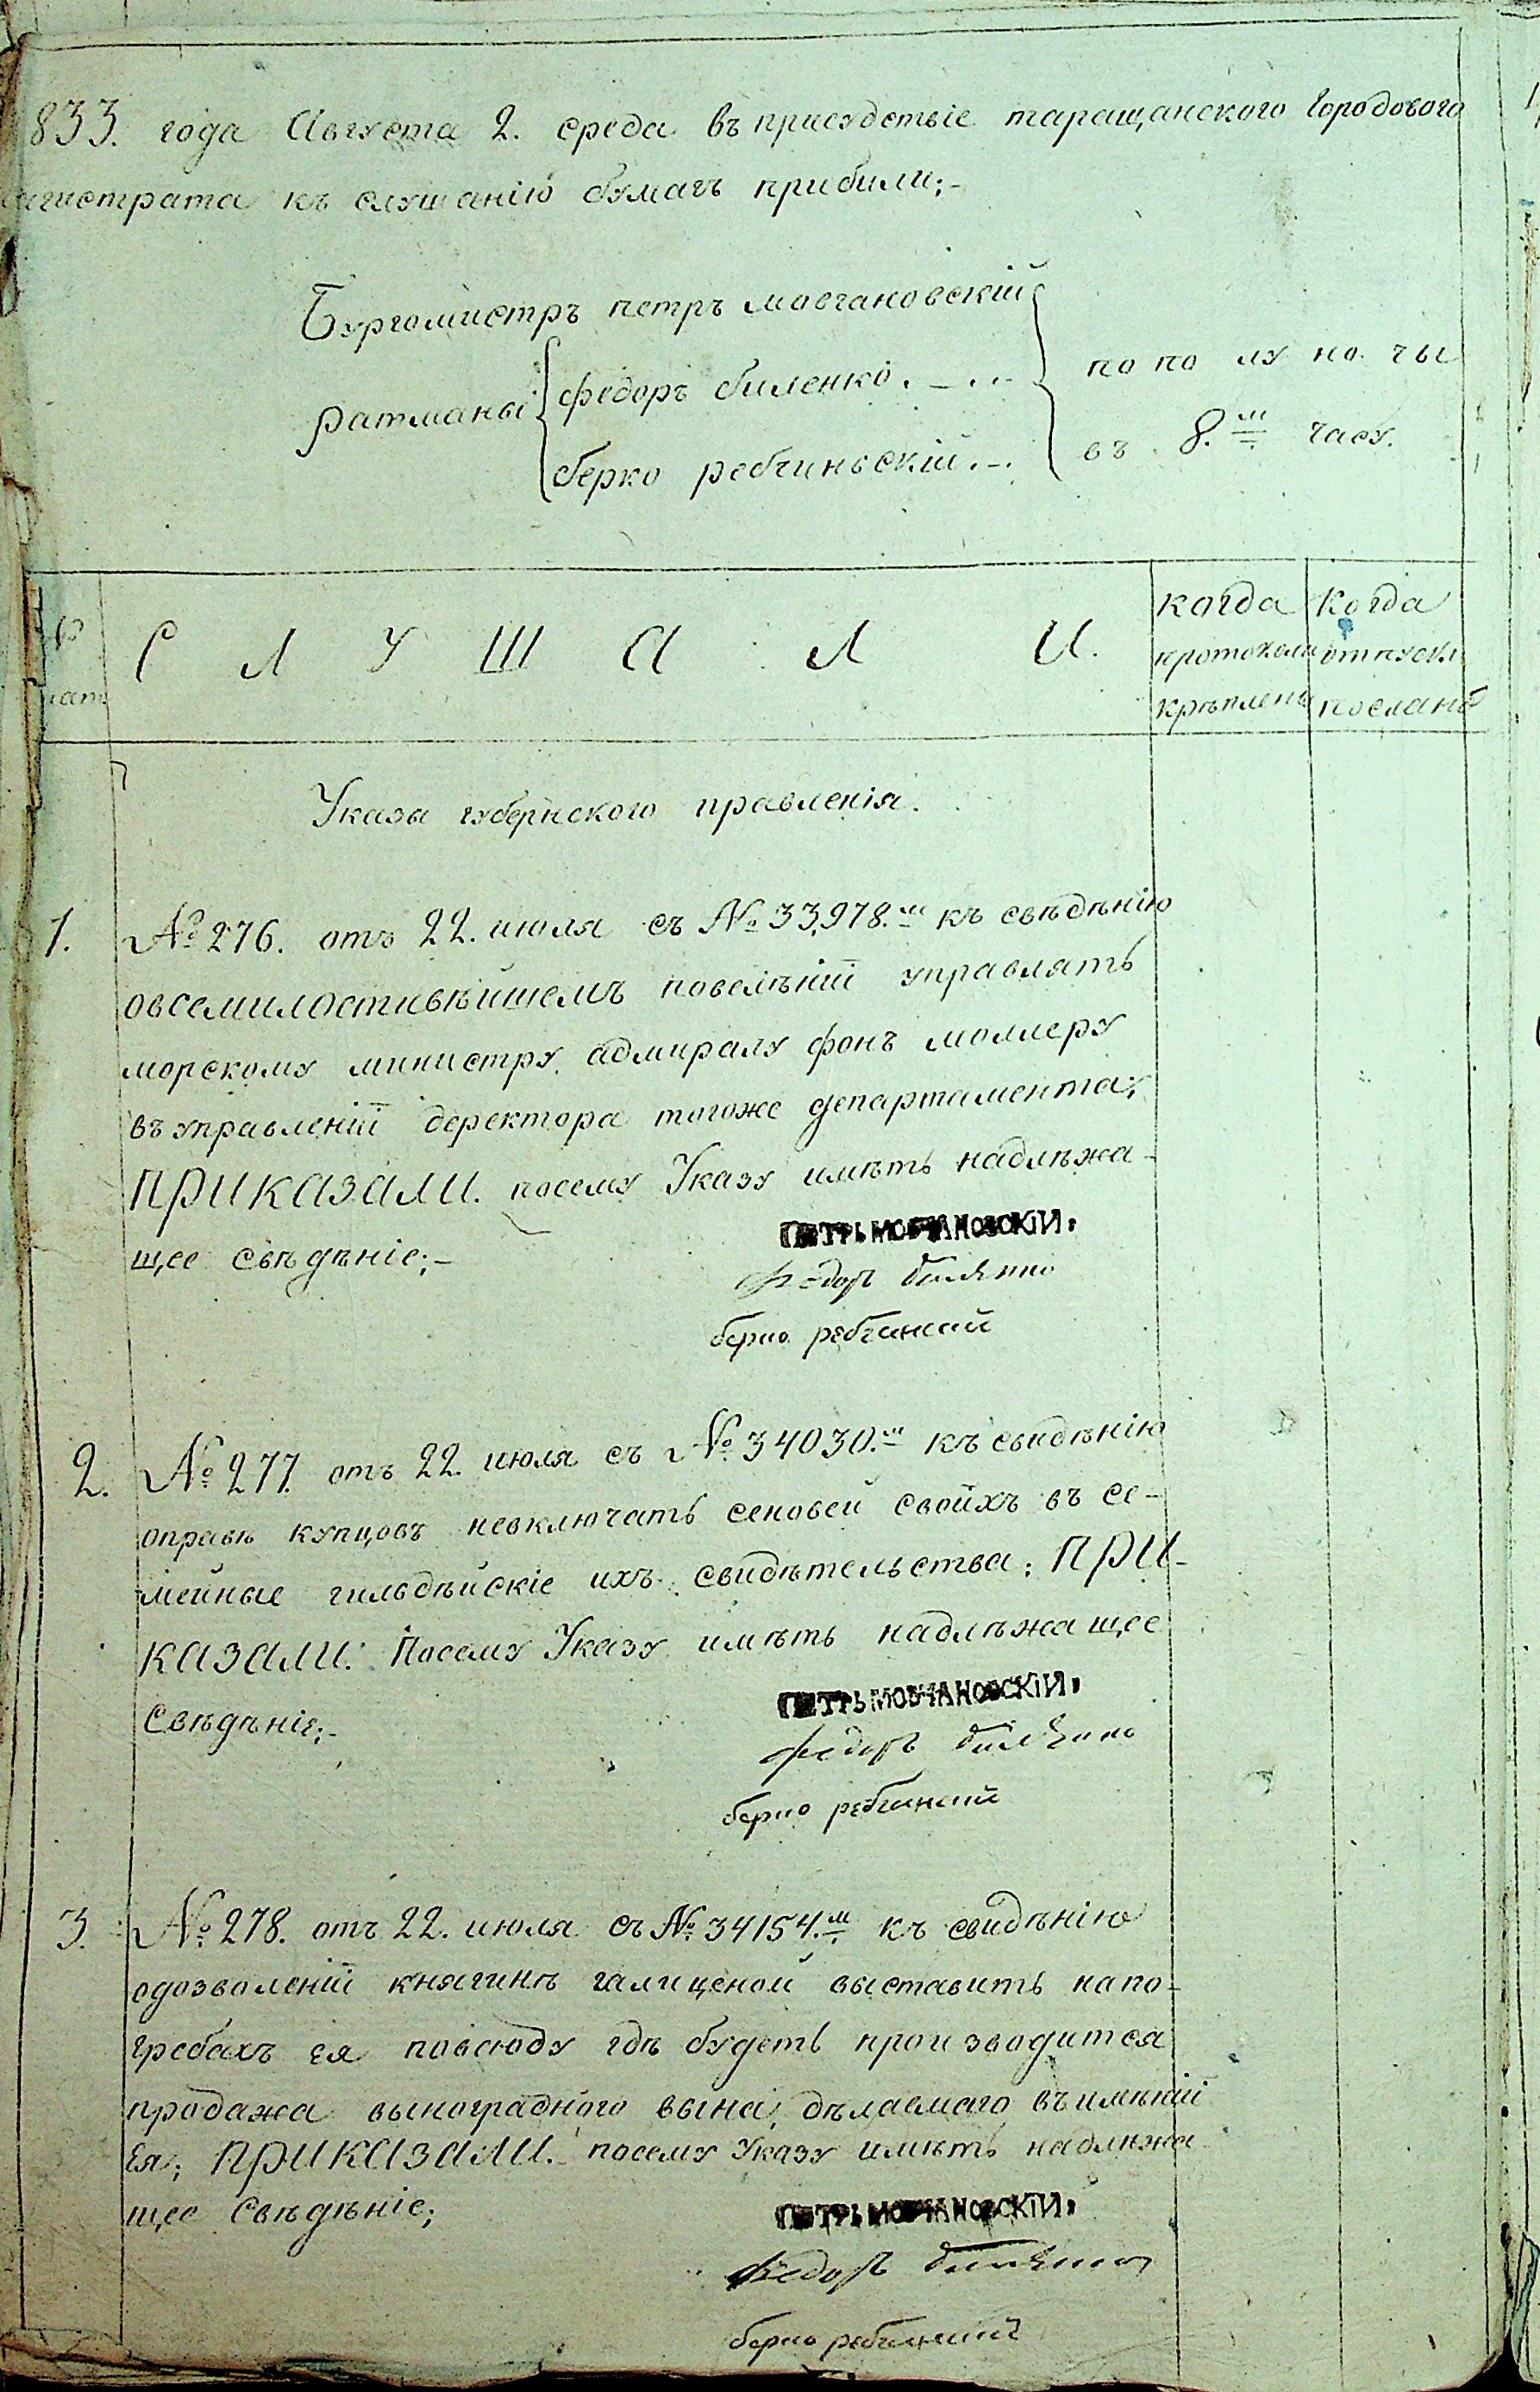 833. года Августа 2. среда въ присудствіе таращанского Городового
агистрата къ слушанію бумагъ прибили;-
Бургомистръ петръ мовчановскій
ратманы
федоръ биленко. - ..
берко ребчиньскій. -.
по по лу но. чы
въ 8.м часу.
С Л У Ш А Л И.
когда протоколи крѣплены
Когда отпуски посланы
Указы губернского правленія.
1. №276. отъ 22. июля съ №33,978.м къ свѣдѣнію
овсемилостивѣйшемъ повелѣніи управлять
морскому министру адмиралу фонъ моллеру
въ управленіи деректора тогоже департамента;
ПРИКАЗАЛИ. посему Указу имѣть надлѣжа-
щее свѣдѣніе;-
ПЕТРЬ МОВЧАНОВСКІЙ.
федоръ биленко
берко ребчинский
2. №277. отъ 22. июля съ №34030.м къ свидѣнію
оправѣ купцовъ невключать сеновей своихъ въ се-
мейные гильдѣйскіе ихъ свидѣтельства; ПРИ-
КАЗАЛИ: Посему Указу имѣть надлѣжащее
свѣдѣніе;-
ПЕТРЬ МОВЧАНОВСКІЙ.
федоръ биленко
берко ребчинский
3. №278. отъ 22. июля съ №34154.м къ свидѣнію
одозволеніи княгинѣ галиценой выставить напо-
гребахъ ея повсюду гдѣ будеть производится
продажа выноградного вына, дѣлаемаго въ имѣніи
Ея; ПРИКАЗАЛИ. посему Указу имѣть надлѣжа
щее Свѣдѣніе;
ПЕТРЬ МОВЧАНОВСКІЙ.
федоръ биленко
берко ребчинский